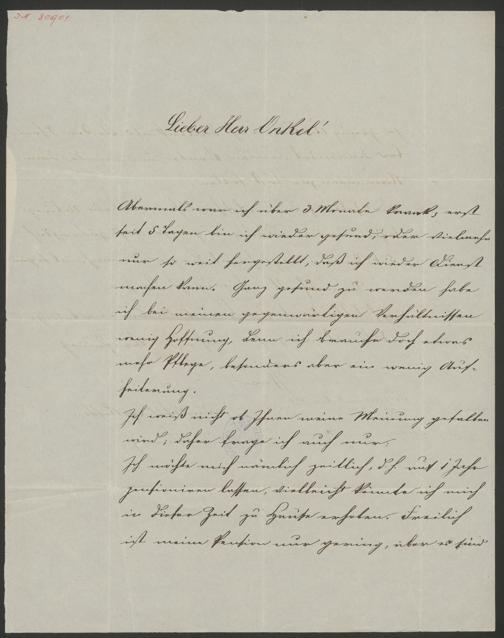 IN 80901
Lieber Herr Onkel!
Abermals war ich über 3 Monate krank, erst
seit 5 Tagen bin ich wieder gesund, oder vielmehr
nur so weit hergestellt, daß ich wieder Dienst
machen kann. Ganz gesund zu werden habe
ich bei meinen gegenwärtigen Verhältnissen
wenig Hoffnung, denn ich brauche doch etwas
mehr Pflege, besonders aber ein wenig Auf-
heiterung.
Ich weiß nicht ob Ihnen meine Meinung gefallen
wird, daher frage ich auch nur.
Ich möchte mich nämlich zeitlich, d.h. auf 1 Jahr
pensioniren lassen, vielleicht könnte ich mich
in dieser Zeit zu Hause erholen. Freilich
ist meine Pension nur gering, aber es sind